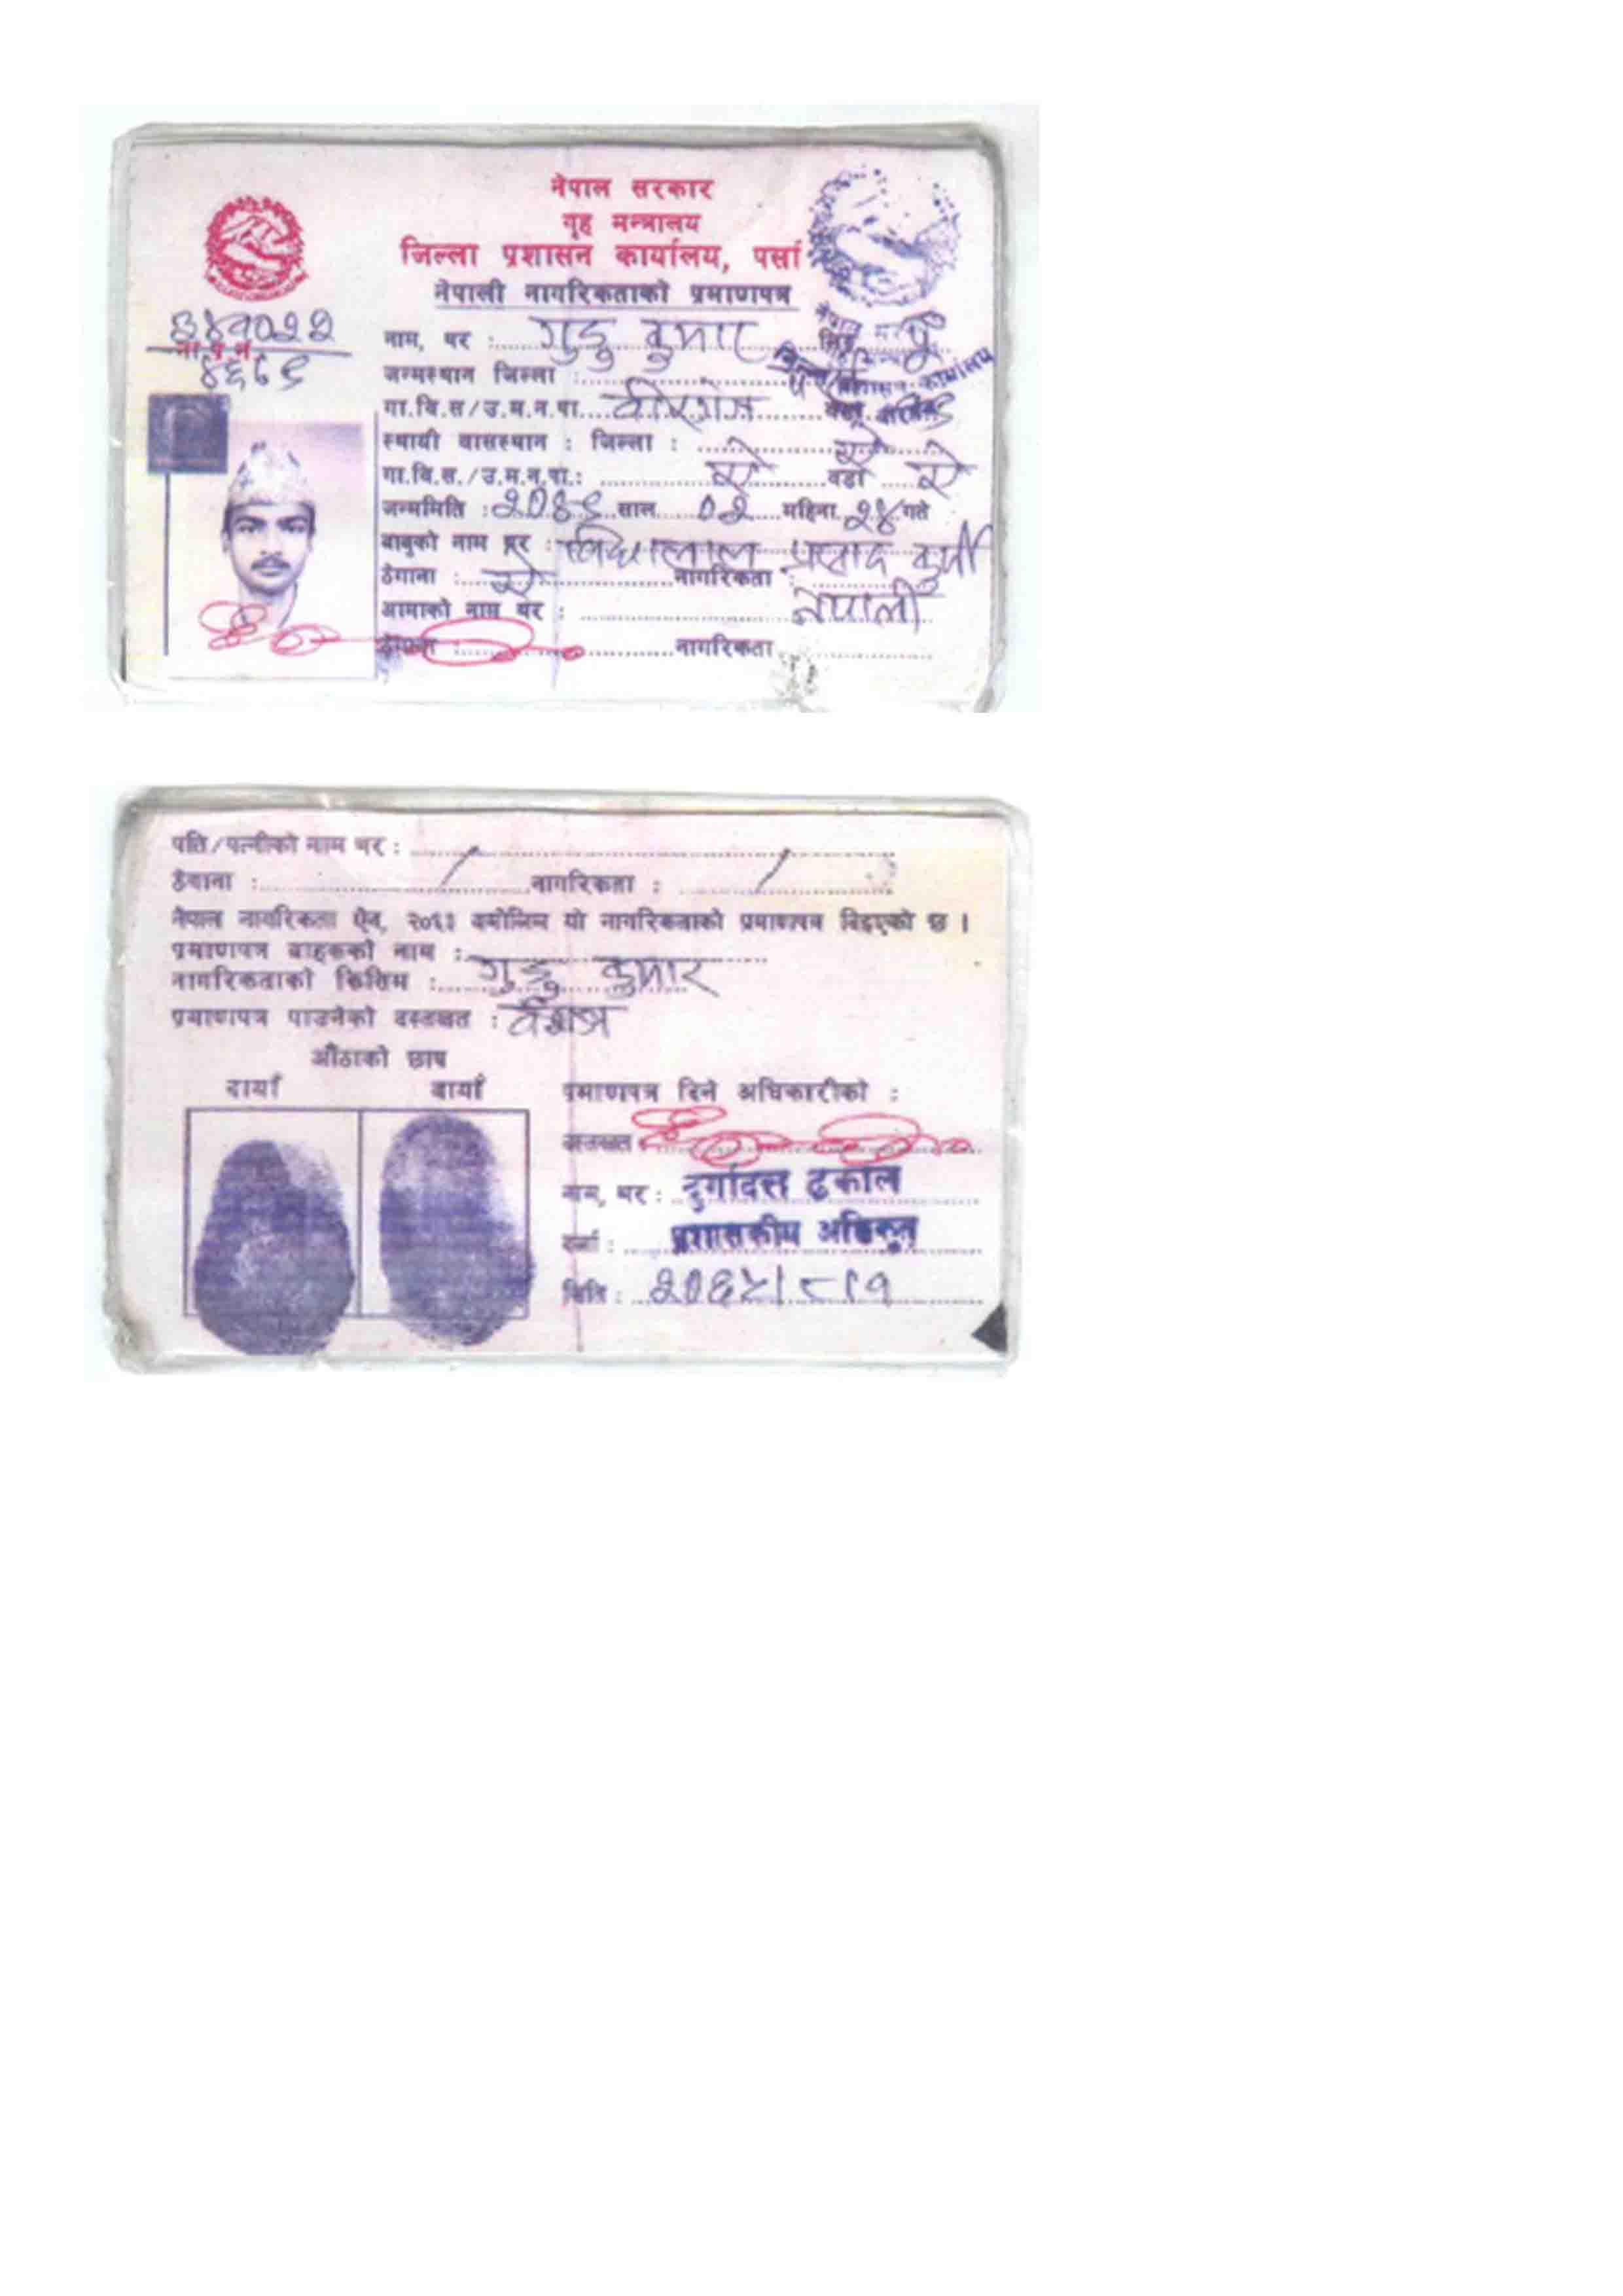 नेपाल सरकार
गृह मन्त्रालय
जिल्ला प्रशासन कार्यालय, पर्सा
नेपाली नागरिकताको प्रमाणपत्र
३४१०२२
ना.प्र.नं.
४६८९
नाम, थर : गुड्डु कुमार लिङ्ग पु
जन्मस्थान जिल्ला :
गा.वि.स/उ.म.न.पा. वीरगंज
स्थायी वासस्थान : जिल्ला : ऐ
गा.वि.स./उ.म.न.पा.: ऐ वडा ऐ
जन्ममिति : २०४९ साल ०२ महिना २४ गते
बाबुको नाम थर : प्रसाद कुर्मी
ठेगाना : ऐ नागरिकता :
नेपाली
आमाको नाम थर :
ठेगाना : नागरिकता
नेपाल सरकार
जिल्ला प्रशासन कार्यालय
पति/पत्नीको नाम थर :
ठेगाना : नागरिकता :
नेपाल नागरिकता ऐन, २०६३ बमोजिम यो नागरिकताको प्रमाणपत्र दिइएको छ ।
प्रमाणपत्र वाहकको नाम : गुड्डु कुमार
नागरिकताको किसिम : वंशज
प्रमाणपत्र पाउनेको दस्तखत :
औंठाको छाप
दायाँ बायाँ
प्रमाणपत्र दिने अधिकारीको :
दस्तखत :
नाम, थर : दुर्गादत्त ढकाल
दर्जा : प्रशासकीय अधिकृत
मिति : २०६५।८।१